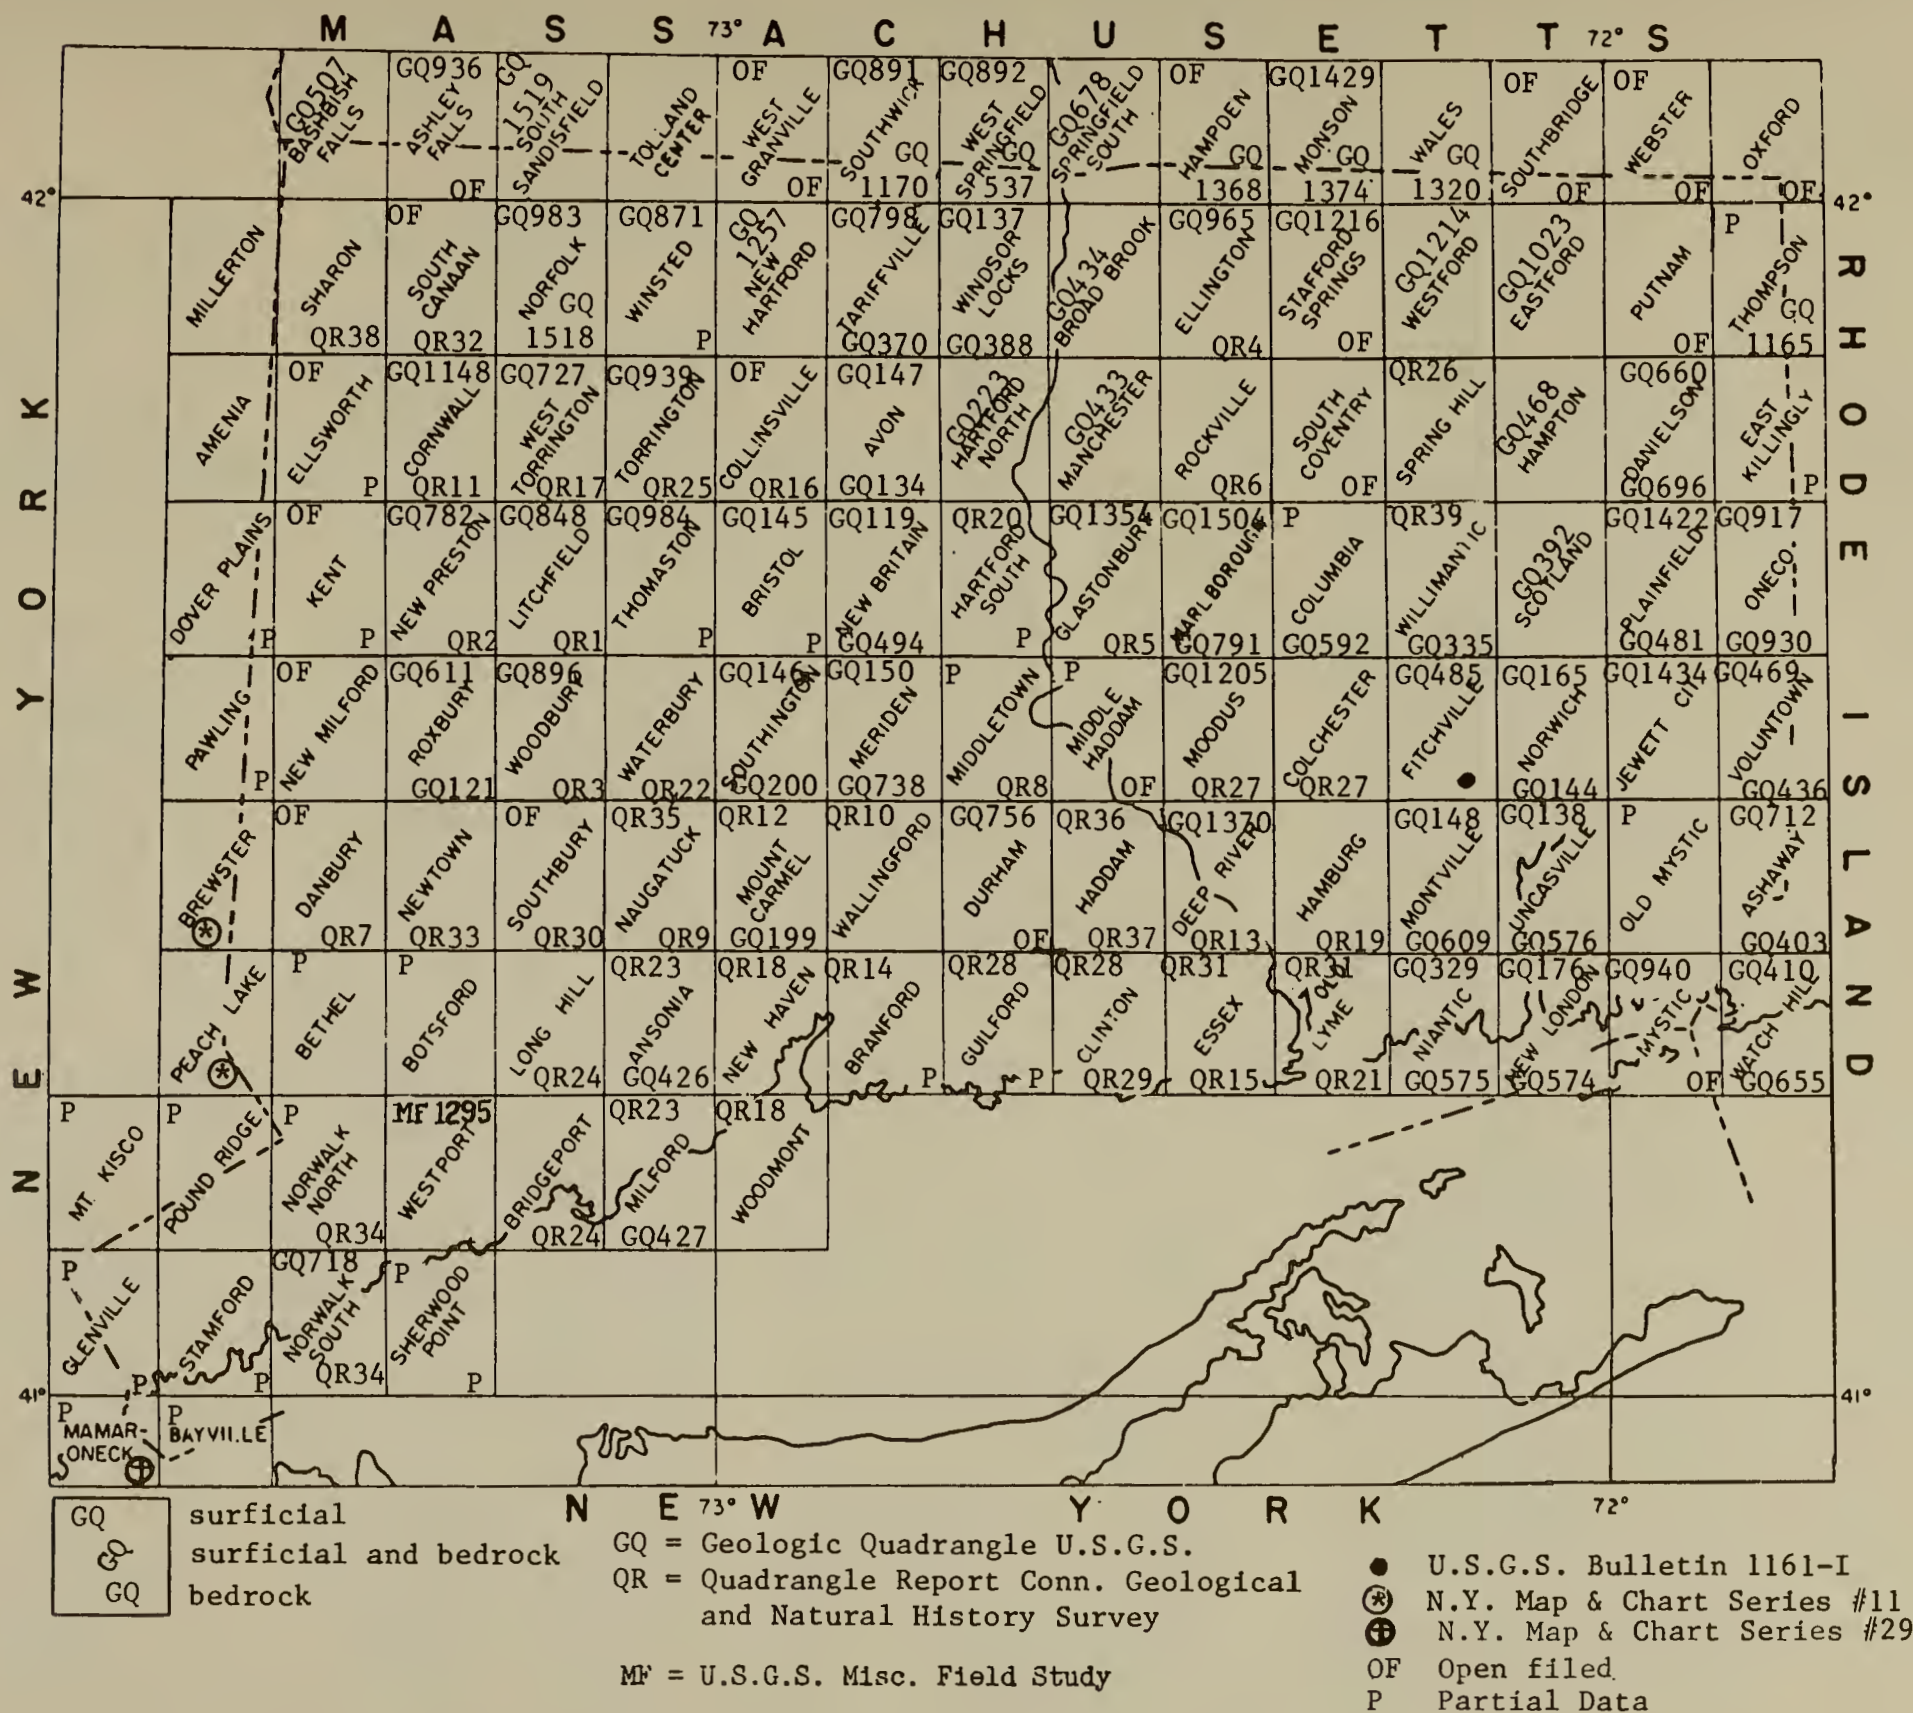 M A S S 73° A C H U S E T T 72° S
GQ507
BASHBISH
FALLS
GQ936
ASHLEY
FALLS
OF
GQ
1519
SOUTH
SANDISFIELD
TOLLAND
CENTER
OF
WEST
GRANVILLE
OF
GQ891
SOUTHWICK
GQ
1170
GQ892
WEST
SPRINGFIELD
GQ
537
GQ678
SPRINGFIELD
SOUTH
OF
HAMPDEN
GQ
1368
GQ1429
MONSON
GQ
1374
WALES
GQ
1320
OF
SOUTHBRIDGE
OF
OF
WEBSTER
OF
OXFORD
OF
42°
42°
MILLERTON
SHARON
QR38
OF
SOUTH
CANAAN
QR32
GQ983
NORFOLK
GQ
1518
GQ871
WINSTED
P
GQ
1257
NEW
HARTFORD
GQ798
TARIFFVILLE
GQ370
GQ137
WINDSOR
LOCKS
GQ388
GQ434
BROAD BROOK
GQ965
ELLINGTON
QR4
GQ1216
STAFFORD
SPRINGS
OF
GQ1214
WESTFORD
GQ1023
EASTFORD
PUTNAM
OF
P
THOMPSON
GQ
1165
AMENIA
OF
ELLSWORTH
P
GQ1148
CORNWALL
QR11
GQ727
WEST
TORRINGTON
QR17
GQ939
TORRINGTON
QR25
OF
COLLINSVILLE
QR16
GQ147
AVON
GQ134
GQ223
HARTFORD
NORTH
GQ433
MANCHESTER
ROCKVILLE
QR6
SOUTH
COVENTRY
OF
QR26
SPRING HILL
GQ468
HAMPTON
GQ660
DANIELSON
GQ696
EAST
KILLINGLY
P
DOVER PLAINS
P
OF
KENT
P
GQ782
NEW PRESTON
QR2
GQ848
LITCHFIELD
QR1
GQ984
THOMASTON
P
GQ145
BRISTOL
P
GQ119
NEW BRITAIN
GQ494
QR20
HARTFORD
SOUTH
P
GQ1354
GLASTONBURY
QR5
GQ1504
MARLBOROUGH
GQ791
P
COLUMBIA
GQ592
QR39
WILLIMANTIC
GQ335
GQ392
SCOTLAND
GQ1422
PLAINFIELD
GQ481
GQ917
ONECO
GQ930
PAWLING
P
OF
NEW MILFORD
GQ611
ROXBURY
GQ121
GQ896
WOODBURY
QR3
WATERBURY
QR22
GQ146
SOUTHINGTON
GQ200
GQ150
MERIDEN
GQ738
P
MIDDLETOWN
QR8
P
MIDDLE
HADDAM
OF
GQ1205
MOODUS
QR27
COLCHESTER
QR27
GQ485
FITCHVILLE
GQ165
NORWICH
GQ144
GQ1434
JEWETT CITY
GQ469
VOLUNTOWN
GQ436
BREWSTER
OF
DANBURY
QR7
NEWTOWN
QR33
OF
SOUTHBURY
QR30
QR35
NAUGATUCK
QR9
QR12
MOUNT
CARMEL
GQ199
QR10
WALLINGFORD
GQ756
DURHAM
OF
QR36
HADDAM
QR37
GQ1370
DEEP RIVER
QR13
HAMBURG
QR19
GQ148
MONTVILLE
GQ609
GQ138
UNCASVILLE
GQ576
P
OLD MYSTIC
GQ712
ASHAWAY
GQ403
PEACH LAKE
P
BETHEL
P
BOTSFORD
LONG HILL
QR24
QR23
ANSONIA
GQ426
QR18
NEW HAVEN
QR14
BRANFORD
P
QR28
GUILFORD
P
QR28
CLINTON
QR29
QR31
ESSEX
QR15
QR31
OLD
LYME
QR21
GQ329
NIANTIC
GQ575
GQ176
NEW LONDON
GQ574
GQ940
MYSTIC
OF
GQ410
WATCH HILL
GQ655
P
MT. KISCO
P
POUND RIDGE
P
NORWALK
NORTH
QR34
MF1295
WESTPORT
BRIDGEPORT
QR24
QR23
MILFORD
GQ427
QR18
WOODMONT
P
GLENVILLE
P
STAMFORD
P
GQ718
NORWALK
SOUTH
QR34
P
SHERWOOD
POINT
P
41°
41°
P
MAMAR-
ONECK
P
BAYVILLE
N E W Y O R K
R H O D E I S L A N D
N E 73° W Y O R K 72°
GQ surficial
GQ surficial and bedrock
GQ bedrock
GQ = Geologic Quadrangle U.S.G.S.
QR = Quadrangle Report Conn. Geological
and Natural History Survey
MF = U.S.G.S. Misc. Field Study
U.S.G.S. Bulletin 1161-I
N.Y. Map & Chart Series #11
N.Y. Map & Chart Series #29
OF Open filed
P Partial Data